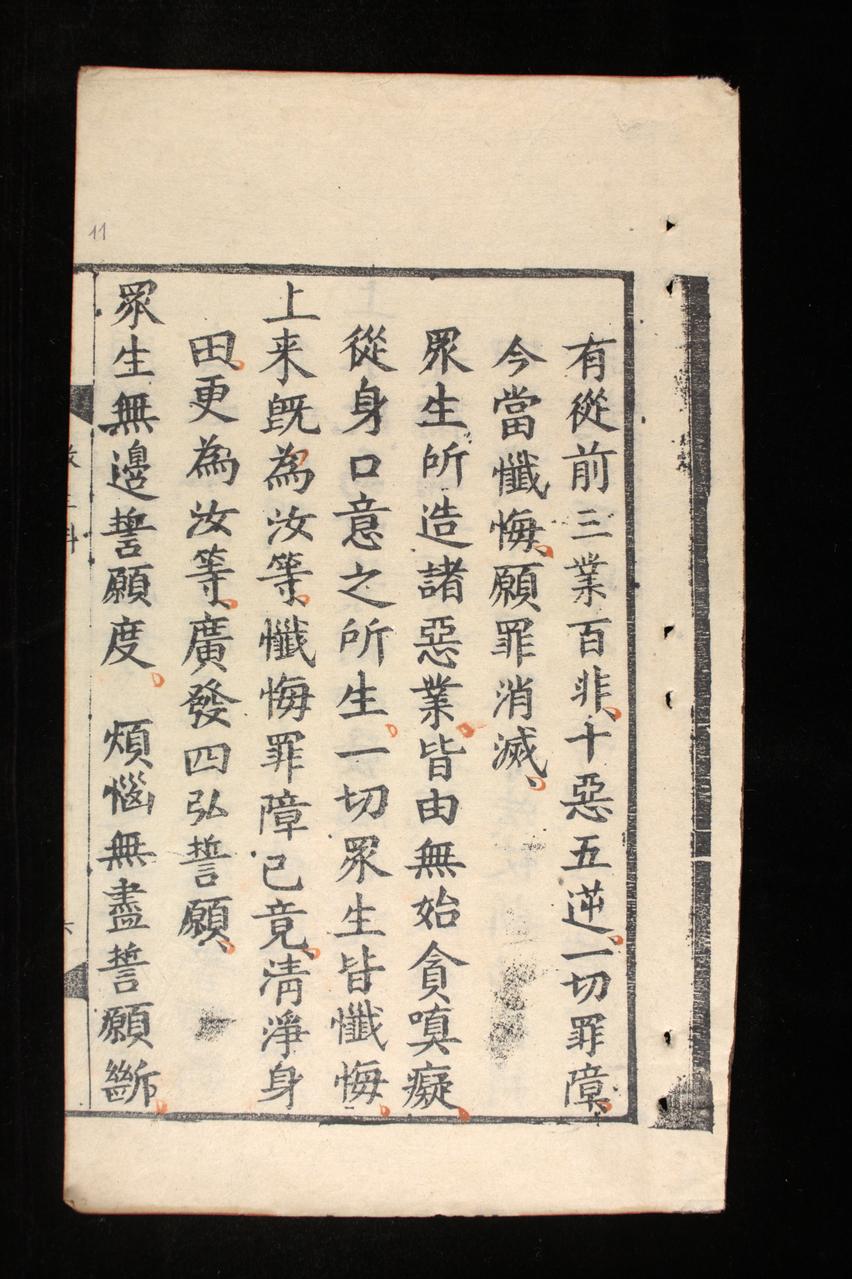 有從前三業百非十惡五逆一切罪障
今當懺悔願罪消滅
眾生所造諸惡業皆由無始貪嗔癡
從身口意之所生一切眾生皆懺悔
上来既為汝等懺悔罪障已竟清淨身
田更為汝等廣發四弘誓願
眾生無邊誓願度 煩惱無盡誓願斷
11